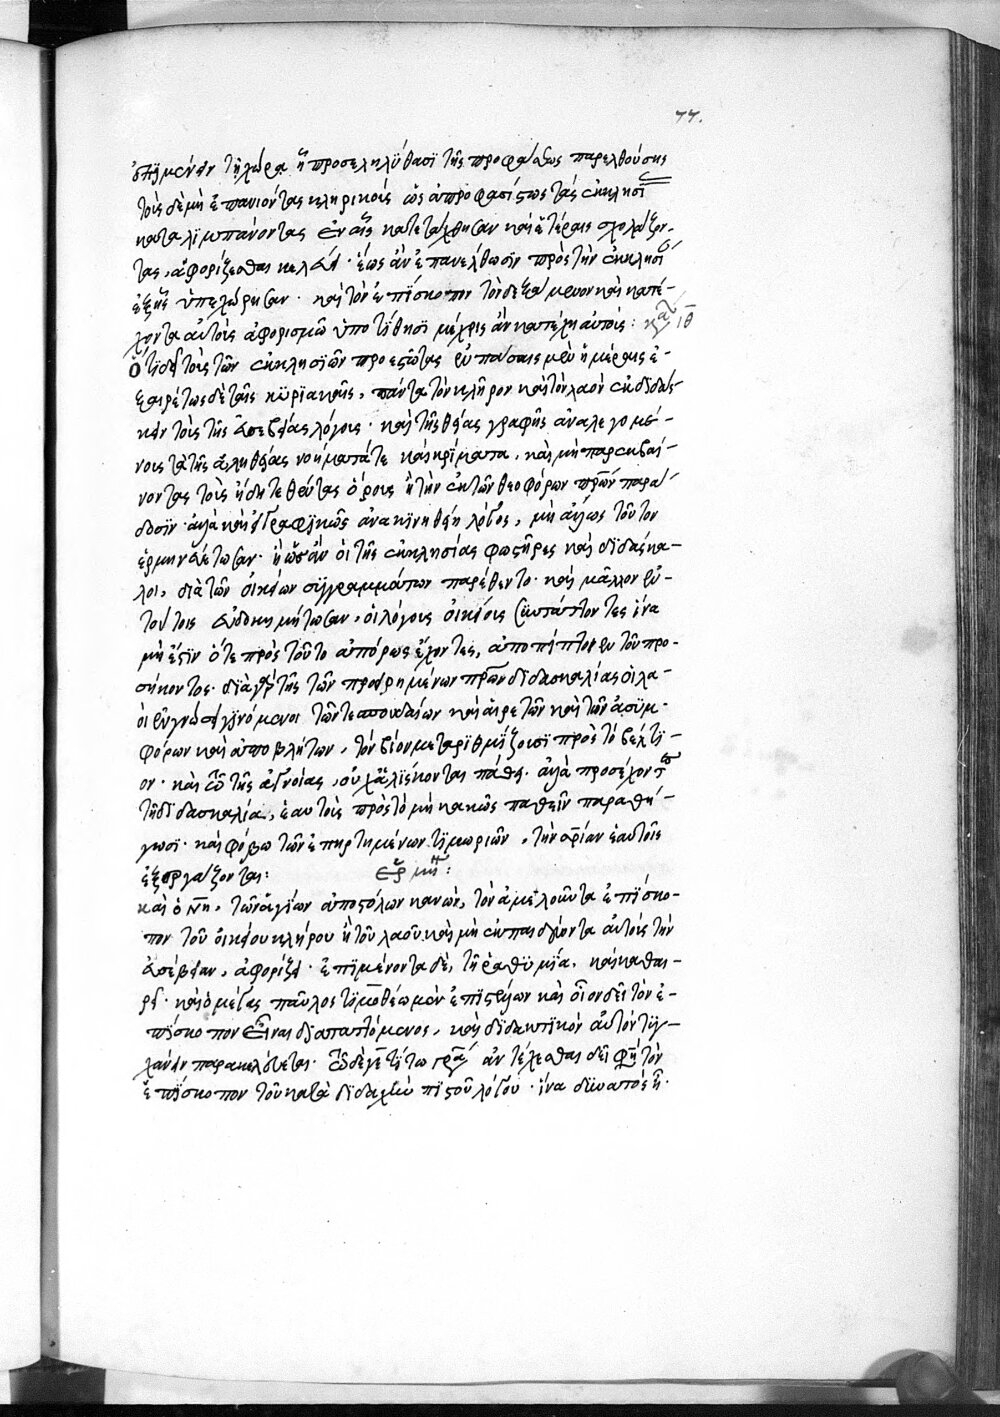 77.
ἐπιμένειν τῇ χώρᾳ ᾗ προσεληλύθασι τῆς προφάσεως παρελθούσης
τοὺς δὲ μὴ ἐπανιόντας κληρικοὺς ὡς ἀπροφασίστως τὰς ἐκκλησί
καταλιμπάνοντας ἐν αἷς κατετάχθησαν καὶ ἑτέραις σχολάζον-
τας, ἀφορίζεσθαι κελεύει· ἕως ἂν ἐπανέλθωσιν πρὸς τὴν ἐκκλησί
ἐξ ἧς ὑπεχώρησαν· καὶ τὸν ἐπίσκοπον τὸν δεξάμενον καὶ κατέ-
χοντα αὐτοὺς ἀφορισμῶ ὑποτίθησι μέχρις ἂν κατέχη αὐτούς: ιθ
Ὅτι δεῖ τοὺς τῶν ἐκκλησιῶν προεστῶτας ἐν πάσαις μὲν ἡμέραις ἐ-
ξαιρέτως δὲ ταῖς κυριακαῖς, πάντα τὸν κλῆρον καὶ τὸν λαὸν ἐκδιδάσ-
κειν τοὺς τῆς εὐσεβείας λόγους· καὶ τῆς θείας γραφῆς ἀναλεγομέ-
νους τὰ τῆς ἀληθείας νοήματά τε καὶ κρίματα, καὶ μὴ παρεκβαί-
νοντας τοὺς ἤδη τεθέντας ὅρους ἢ τὴν ἐκ τῶν θεοφόρων πρων παρά
δοσιν· ἀλλὰ καὶ εἰ γραφικῶς ἀνακινηθείη λόγος, μὴ ἄλλως τοῦτον
ἑρμηνευέτωσαν· ἢ ὡς ἂν οἱ τῆς ἐκκλησίας φωστῆρες καὶ διδάσκα-
λοι, διὰ τῶν οἰκείων συγγραμμάτων παρέθεντο· καὶ μᾶλλον ἐν
τούτοις εὐδοκιμήτωσαν, ἢ λόγους οἰκείους συντάττοντες ἵνα
μὴ ἔστιν ὅτε πρὸς τοῦτο ἀπόρως ἔχοντες, ἀποπίπτοιεν τοῦ προ-
σήκοντος· διὰ γὰρ τῆς τῶν προειρημένων πρων διδασκαλίας οἱ λα-
οὶ ἐν γνώσει γινόμενοι τῶν τε σπουδαίων καὶ αἱρετῶν καὶ τῶν ἀσυμ-
φόρων καὶ ἀποβλήτων, τὸν βίον μεταρυθμίζουσι πρὸς τὸ βέλτι-
ον· καὶ τῶ τῆς ἀγνοίας, οὐχ ἁλίσκονται πάθει· ἀλλὰ προσέχοντες
τῇ διδασκαλία, ἑαυτοὺς πρὸς τὸ μὴ κακῶς παθεῖν παραθή-
γουσι· καὶ φόβω τῶν ἐπηρτημένων τιμωριῶν, τὴν σρίαν ἑαυτοῖς
ἐξεργάζονται: ἑρμη:
καὶ ὁ νη, τῶν ἁγίων ἀποστόλων κανὼν, τὸν ἀμελοῦντα ἐπίσκο-
πον τοῦ οἰκείου κλήρου ἢ τοῦ λαοῦ καὶ μὴ ἐκπαιδεύοντα αὐτοὺς τὴν
εὐσέβειαν, ἀφορίζει· ἐπιμένοντα δὲ, τῇ ῥαθυμία, καὶ καθαι-
ρεῖ· καὶ ὁ μέγας παῦλος τῶ τιμοθέω μὲν ἐπιστέλλων καὶ οἷον δεῖ τὸν ἐ-
πίσκοπον εἶναι διαπαττόμενος, καὶ διδακτικὸν αὐτὸν τυγ-
χάνειν παρακελεύεται· ἀντέχεσθαι δεῖ φησὶ τὸν
ἐπίσκοπον τοῦ κατὰ διδαχὴν πιστοῦ λόγου· ἵνα δυνατὸς ᾖ·